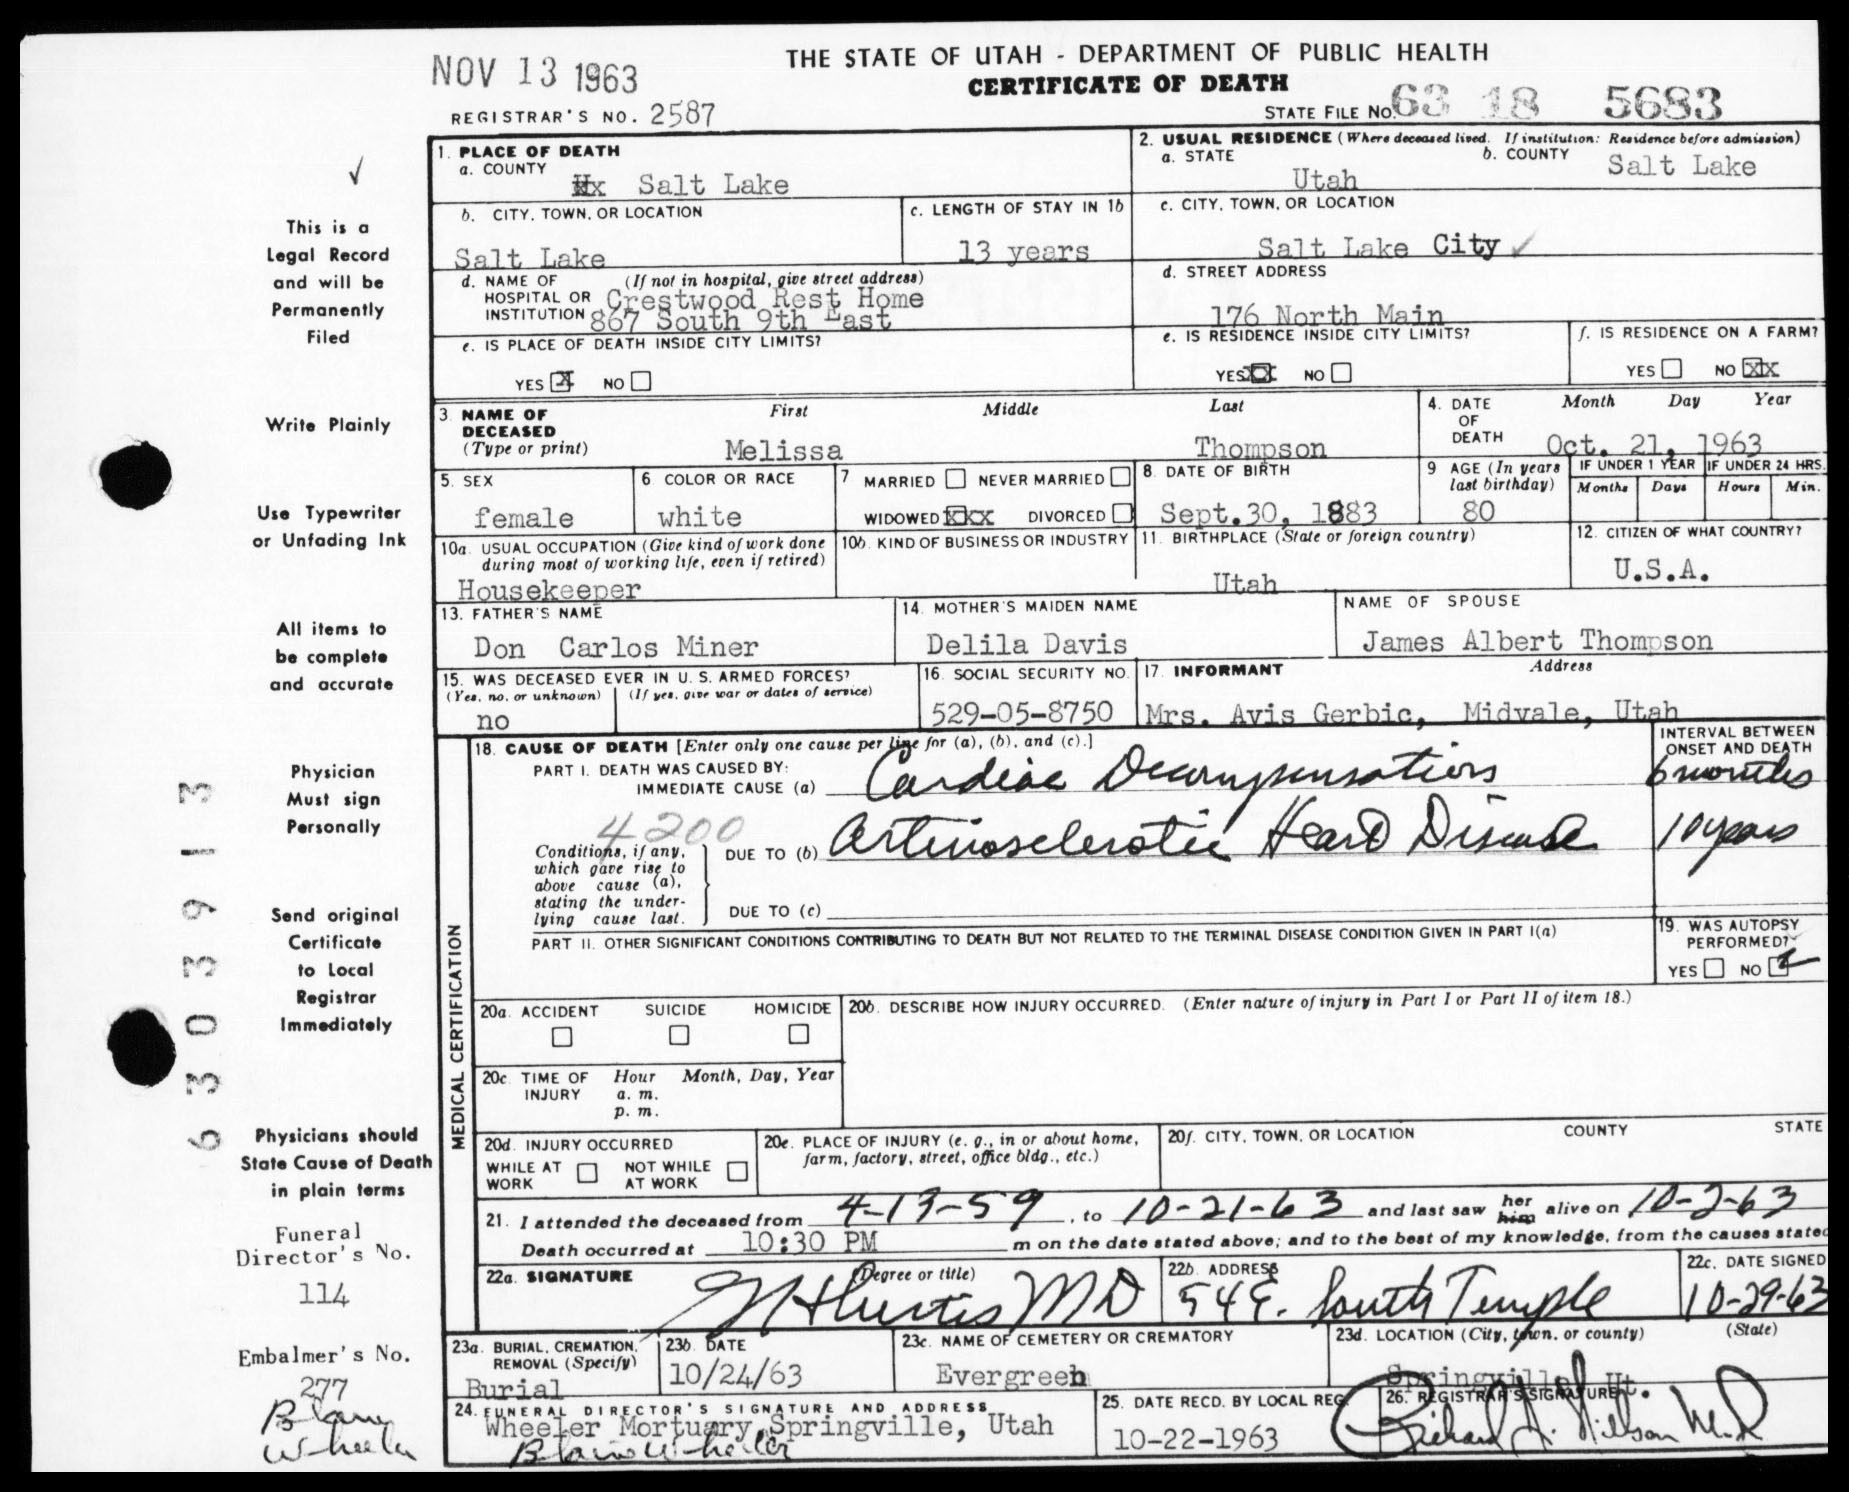 THE STATE OF UTAH - DEPARTMENT OF PUBLIC HEALTH
NOV 13 1963
CERTIFICATE OF DEATH
REGISTRAR'S NO. 2587
STATE FILE NO. 63 18 5683
1. PLACE OF DEATH
a. COUNTY
Salt Lake
2. USUAL RESIDENCE (Where deceased lived. If institution: Residence before admission)
a. STATE
Utah
b. COUNTY
Salt Lake
b. CITY, TOWN, OR LOCATION
Salt Lake
c. LENGTH OF STAY IN 1b
13 years
c. CITY, TOWN, OR LOCATION
Salt Lake City ✓
d. NAME OF HOSPITAL OR INSTITUTION
(If not in hospital, give street address)
Crestwood Rest Home
867 South 9th East
d. STREET ADDRESS
176 North Main
e. IS PLACE OF DEATH INSIDE CITY LIMITS?
YES X NO
e. IS RESIDENCE INSIDE CITY LIMITS?
YES XX NO
f. IS RESIDENCE ON A FARM?
YES NO XX
3. NAME OF DECEASED
(Type or print)
First Middle Last
Melissa Thompson
4. DATE OF DEATH
Month Day Year
Oct. 21, 1963
5. SEX
female
6 COLOR OR RACE
white
7 MARRIED NEVER MARRIED
WIDOWED XXX DIVORCED
8. DATE OF BIRTH
Sept.30, 1883
9 AGE (In years last birthday)
80
IF UNDER 1 YEAR
Months Days
IF UNDER 24 HRS.
Hours Min.
10a. USUAL OCCUPATION (Give kind of work done during most of working life, even if retired)
Housekeeper
10b. KIND OF BUSINESS OR INDUSTRY
11. BIRTHPLACE (State or foreign country)
Utah
12. CITIZEN OF WHAT COUNTRY?
U.S.A.
13. FATHER'S NAME
Don Carlos Miner
14. MOTHER'S MAIDEN NAME
Delila Davis
NAME OF SPOUSE
James Albert Thompson
15. WAS DECEASED EVER IN U. S. ARMED FORCES?
(Yes, no, or unknown) (If yes, give war or dates of service)
no
16. SOCIAL SECURITY NO.
529-05-8750
17. INFORMANT Address
Mrs. Avis Gerbic, Midvale, Utah
MEDICAL CERTIFICATION
18. CAUSE OF DEATH [Enter only one cause per line for (a), (b), and (c).]
INTERVAL BETWEEN ONSET AND DEATH
PART I. DEATH WAS CAUSED BY:
IMMEDIATE CAUSE (a) Cardiac Decompensation 6 months
4200
Conditions, if any, which gave rise to above cause (a), stating the underlying cause last.
DUE TO (b) Arteriosclerotic Heart Disease 10 years
DUE TO (c)
PART II. OTHER SIGNIFICANT CONDITIONS CONTRIBUTING TO DEATH BUT NOT RELATED TO THE TERMINAL DISEASE CONDITION GIVEN IN PART I(a)
19. WAS AUTOPSY PERFORMED?
YES NO
20a. ACCIDENT SUICIDE HOMICIDE
20b. DESCRIBE HOW INJURY OCCURRED. (Enter nature of injury in Part I or Part II of item 18.)
20c. TIME OF INJURY
Hour Month, Day, Year
a. m.
p. m.
20d. INJURY OCCURRED
WHILE AT WORK NOT WHILE AT WORK
20e. PLACE OF INJURY (e. g., in or about home, farm, factory, street, office bldg., etc.)
20f. CITY, TOWN, OR LOCATION COUNTY STATE
21. I attended the deceased from 4-13-59, to 10-21-63 and last saw her him alive on 10-2-63
Death occurred at 10:30 PM m on the date stated above; and to the best of my knowledge, from the causes stated
22a. SIGNATURE (Degree or title)
Curtis MD
22b. ADDRESS
54 E. South Temple
22c. DATE SIGNED
10-29-63
23a. BURIAL, CREMATION, REMOVAL (Specify)
Burial
23b. DATE
10/24/63
23c. NAME OF CEMETERY OR CREMATORY
Evergreen
23d. LOCATION (City, town, or county) (State)
Springville, Ut.
24. FUNERAL DIRECTOR'S SIGNATURE AND ADDRESS
Wheeler Mortuary Springville, Utah
Blaine Wheeler
25. DATE RECD. BY LOCAL REG.
10-22-1963
26. REGISTRAR'S SIGNATURE
Richard
M.D.
✓
This is a
Legal Record
and will be
Permanently
Filed
Write Plainly
Use Typewriter
or Unfading Ink
All items to
be complete
and accurate
Physician
Must sign
Personally
Send original
Certificate
to Local
Registrar
Immediately
Physicians should
State Cause of Death
in plain terms
Funeral
Director's No.
114
Embalmer's No.
277
Blaine
Wheeler
6303913